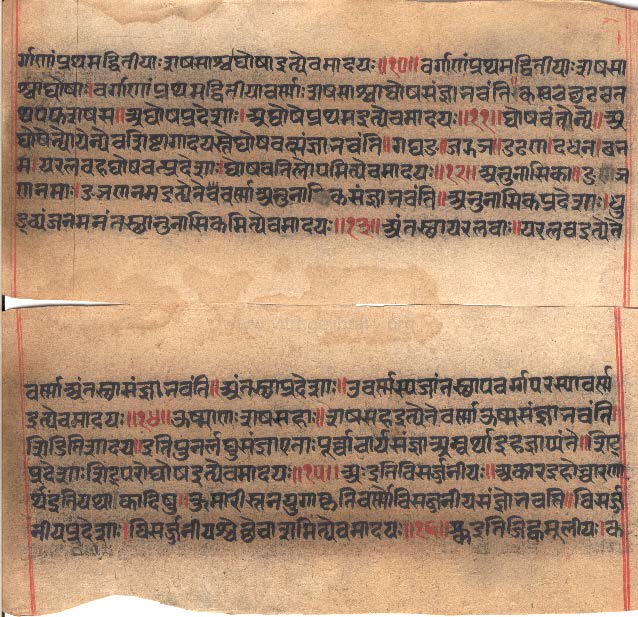 र्गाणांप्रथमद्वितीयाःशषसाश्चाघोषाइत्येवमादयः॥१०॥वर्गाणांप्रथमद्वितीयाःशषसा
श्चाघोषाः।वर्गाणांप्रथमद्वितीयावर्णाःशषसाश्चाघोषसंज्ञाभवंति॥कखचछटठत
थपफशषस॥अघोषप्रदेशाः।अघोषेप्रथमइत्येवमादयः॥११॥घोषवंतोन्ये॥अ
घोषेभ्योयेन्येवशिष्टागादयस्तेघोषवत्संज्ञाभवंति॥गघङ।जझञ।डढणदधनबभ
म।यरलवहघोषवत्प्रदेशाः।घोषवतिलोपमित्येवमादयः॥१२॥अनुनासिकाङञ
णनमाः।ङञणनमइत्येतेवर्णाअनुनासिकसंज्ञाभवंति॥अनुनासिकप्रदेशाः।धु
ड्व्यंजनमनंतस्थानुनासिकमित्येवमादयः॥१३॥अंतस्थायरलवाः॥यरलवइत्येते
वर्णाअंतस्थासंज्ञाभवंति॥अंतस्थाप्रदेशाः।उवर्णस्यजांतस्थापवर्गपरस्यावर्णे
इत्येवमादयः॥१४॥ऊष्माणःशषसहाः॥शषसहइत्येतेवर्णाऊष्मसंज्ञाभवंति
शिडितिशादयः।इतिपुनर्लघुसंज्ञाएताःपूर्वाचार्यसंज्ञाअन्वर्थाइहज्ञाप्यंते॥शिट्
प्रदेशाःशिट्परोघोषइत्येवमादयः॥१५॥अःइतिविसर्जनीयः॥अकारइहोच्चारणा
र्थइतियथाकादिषु।कुमारीस्तनयुगाकृतिवर्णोविसर्जनीयसंज्ञोभवति॥विसर्ज
नीयप्रदेशाः।विसर्जनीयश्चेछेवाशमित्येवमादयः॥१६॥कइतिजिह्वामूलीयः।क